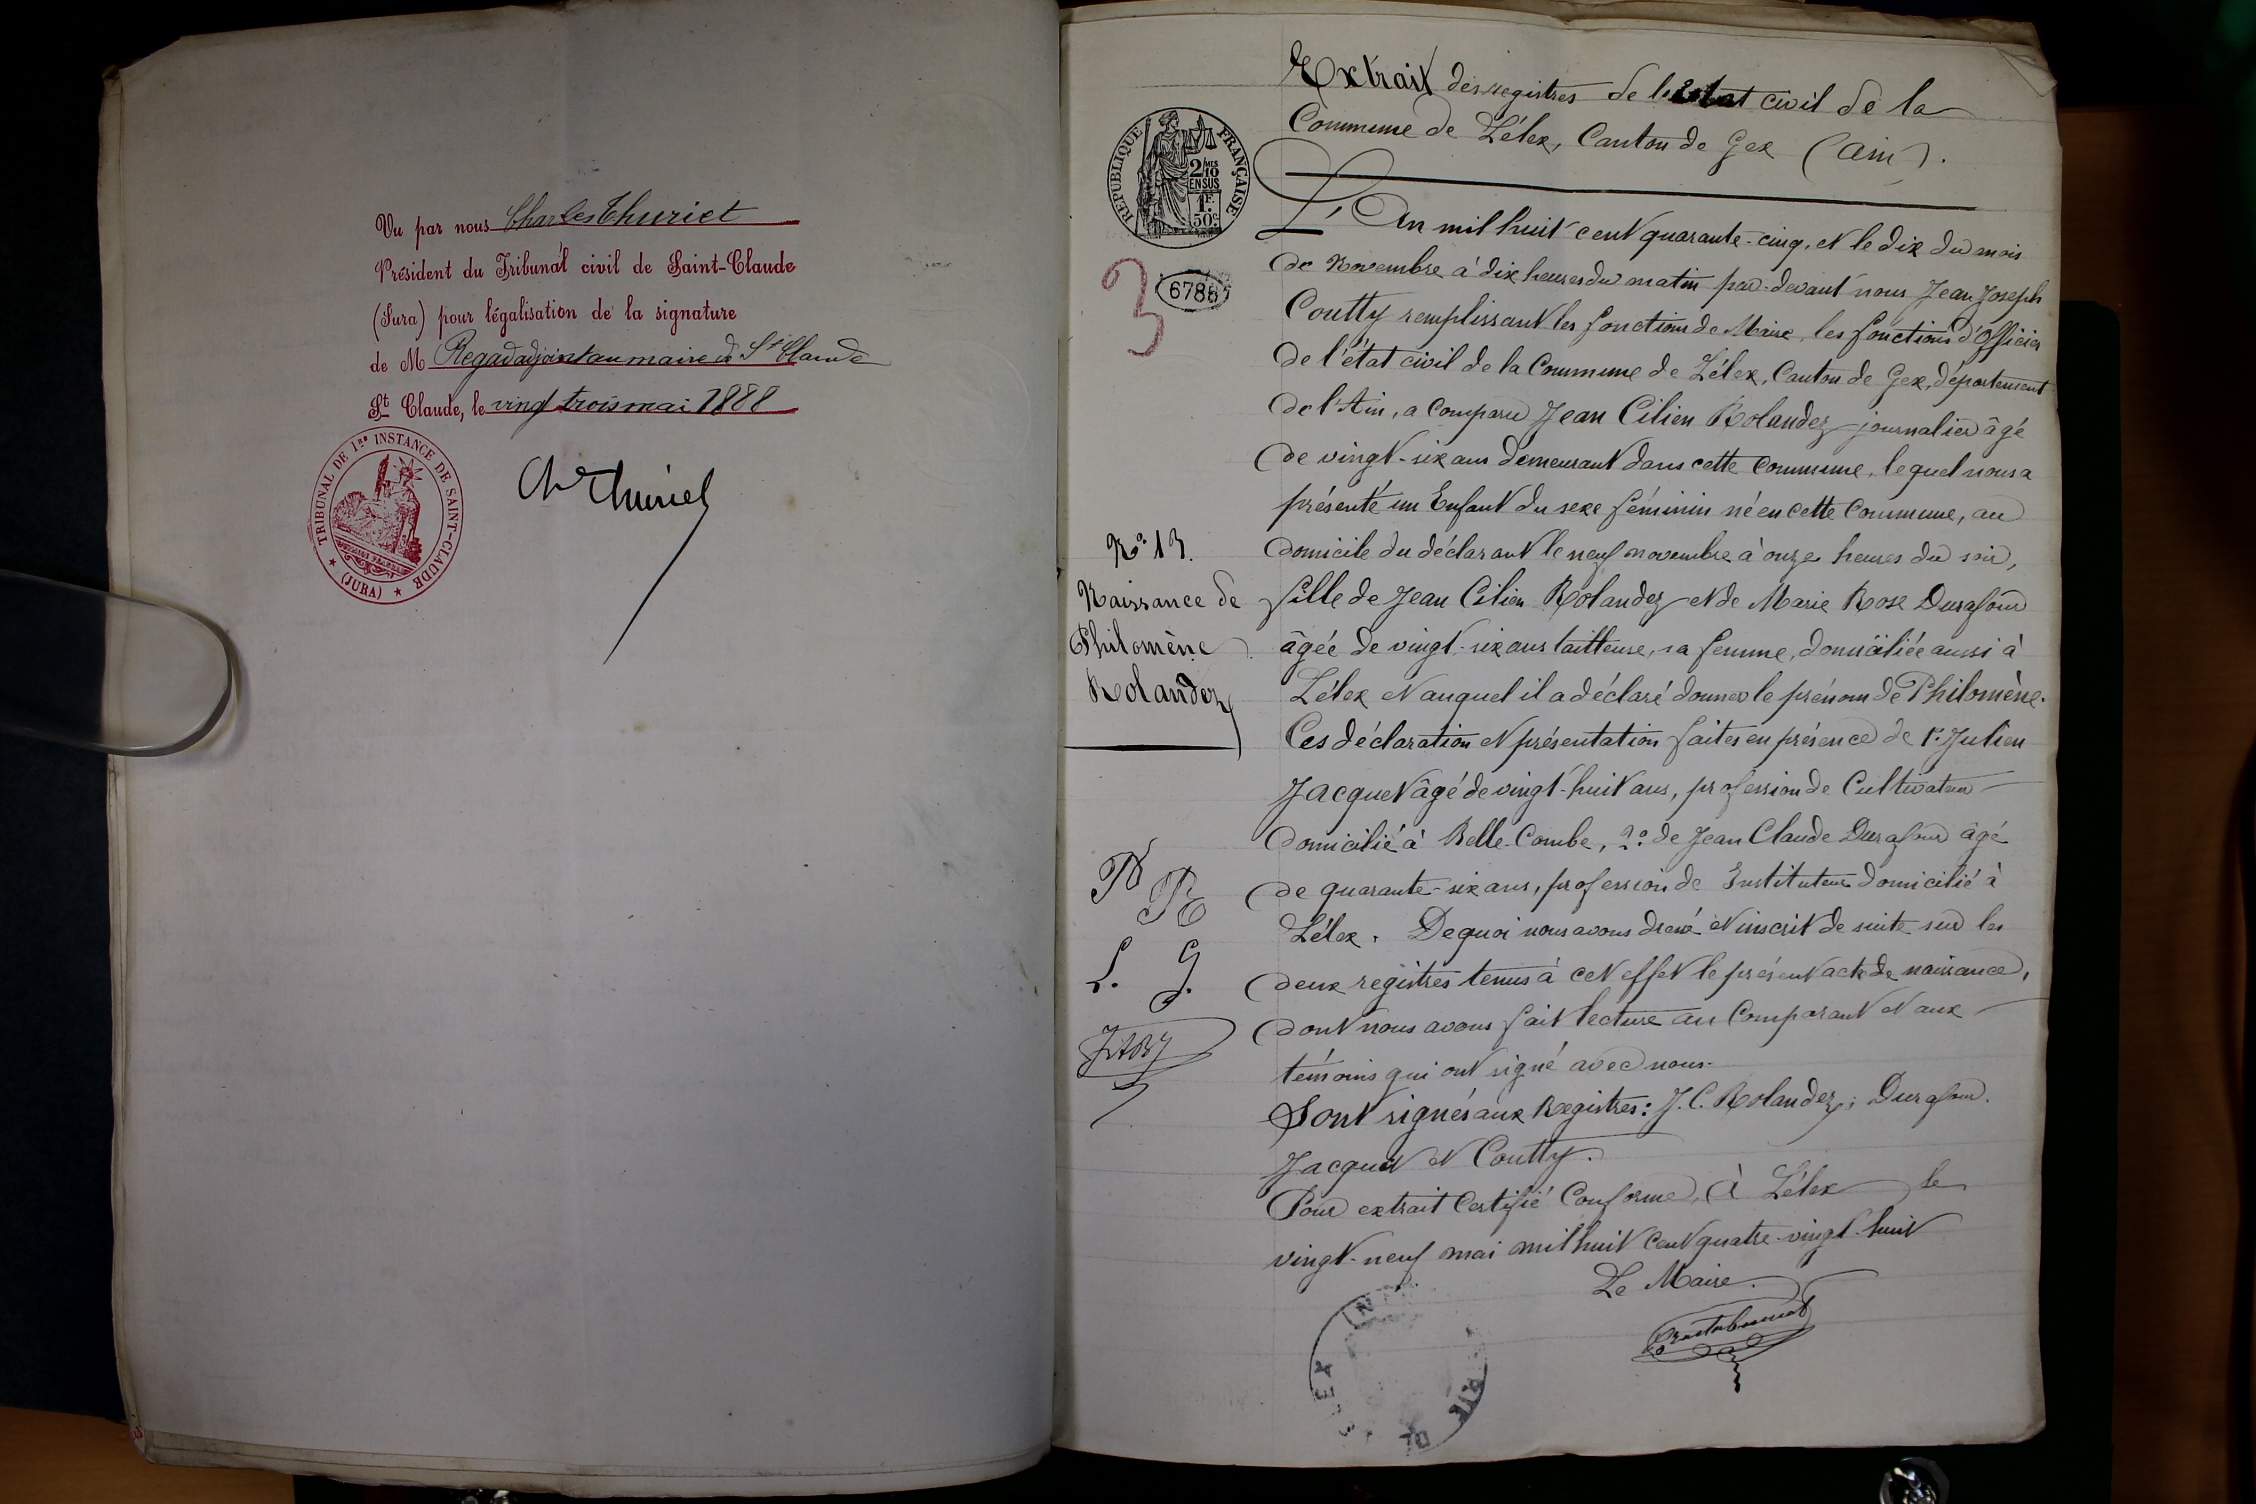 Vu par nous Charles Thuriet
Président du Tribunal civil de Saint-Claude
(Jura) pour légalisation de la signature
de M Regad adjoint au maire de St Claude
St Claude, le vingt trois mai 1888
TRIBUNAL DE 1re INSTANCE DE SAINT-CLAUDE
★ (JURA) ★
Ch Thuriet
Extrait des registres de l'Etat civil de la
Commune de Lélex, Canton de Gex (Ain).
REPUBLIQUE FRANÇAISE
2/10 MES
EN SUS
1F.
50c.
3
6788
L'An mil huit cent quarante-cinq, et le dix du mois
de Novembre à dix heures du matin par-devant nous Jean Joseph
Coutty remplissant les fonctions de Maire, les fonctions d'Officier
de l'état civil de la Commune de Lélex, Canton de Gex, département
de l'Ain, a comparu Jean Cilien Rolandez journalier âgé
de vingt-six ans demeurant dans cette Commune, lequel nous a
présenté un Enfant du sexe féminin né en cette Commune, au
domicile du déclarant le neuf novembre à onze heures du soir,
fille de Jean Cilien Rolandez et de Marie Rose Durafour
âgée de vingt-six ans tailleuse, sa femme, domiciliée aussi à
Lélex et auquel il a déclaré donner le prénom de Philomène.
Ces déclaration et présentation faites en présence de 1° Julien
Jacquet âgé de vingt-huit ans, profession de Cultivateur
domicilié à Belle-Combe, 2° de Jean Claude Durafour âgé
de quarante-six ans, profession de Instituteur domicilié à
Lélex. De quoi nous avons dressé et inscrit de suite sur les
deux registres tenus à cet effet le présent acte de naissance,
dont nous avons fait lecture au Comparant et aux
témoins qui ont signé avec nous.
Sont signés aux Registres: J. C. Rolandez; Durafour.
Jacquet et Coutty.
Pour extrait Certifié Conforme, à Lélex le
vingt-neuf mai mil huit cent quatre-vingt-huit
Le Maire
N° 13.
Naissance de
Philomène
Rolandez
L. G.